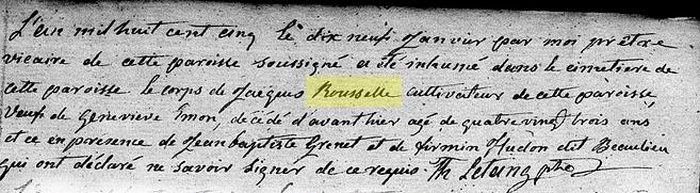 L'an mil huit cent cinq le dix neuf Janvier par moi prêtre
vicaire de cette paroisse soussigné a été inhumé dans le cimetiere de
cette paroisse le corps de Jacques Rousselle cultivateur de cette paroisse
veuf de Geneviève Emon, décédé d'avanthier agé de quatre vingt trois ans
et ce en presence de Jean baptiste Grenet et de firmin hudon dit Beaulieu
qui ont déclaré ne savoir signer de ce requis. Th Letang ptre